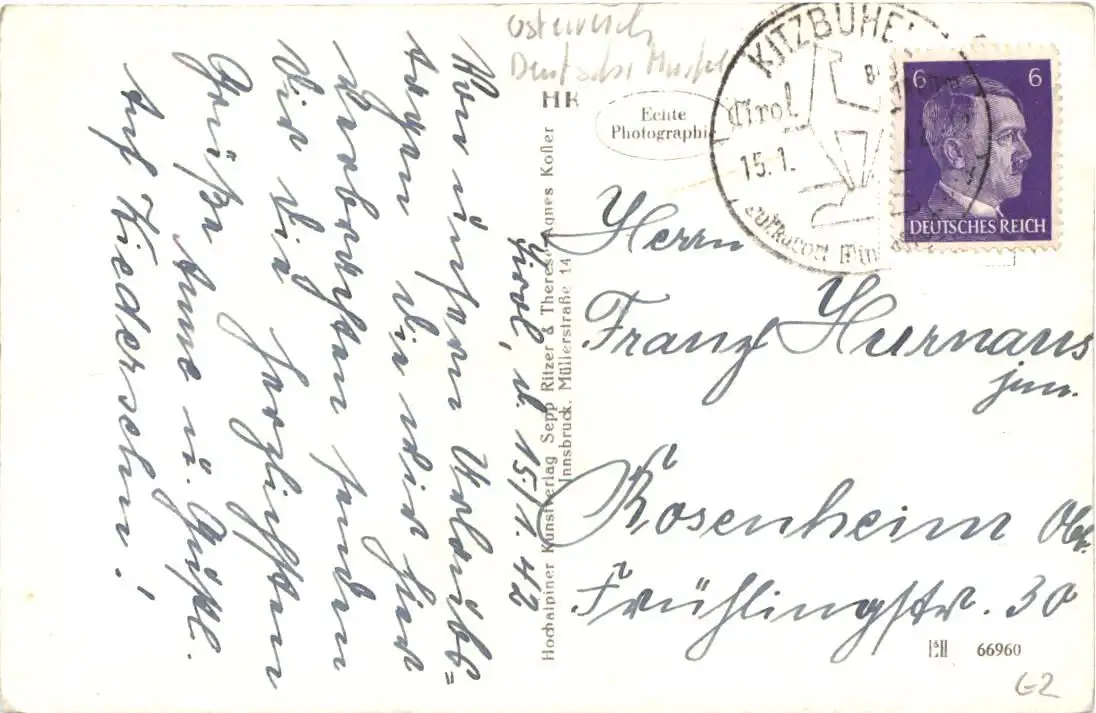 Tirol, d. 15./1. 42
Von unseren Urlaubs=
tagen die wir hier
verbrachten senden
Dir die herzlichsten
Grüße Anne u. Gustl.
Auf Wiedersehn!
Österreich
Deutsche
HR
Echte
Photographie
Hochalpiner Kunstverlag Sepp Ritzer & Therese Agnes Koller
Innsbruck, Müllerstraße 14
KITZBÜHEL
Tirol
15.1.
Luftkurort
6 6
DEUTSCHES REICH
Herrn
Franz Hurnaus
jun.
Rosenheim Obb.
Frühlingstr. 30
66960
G2